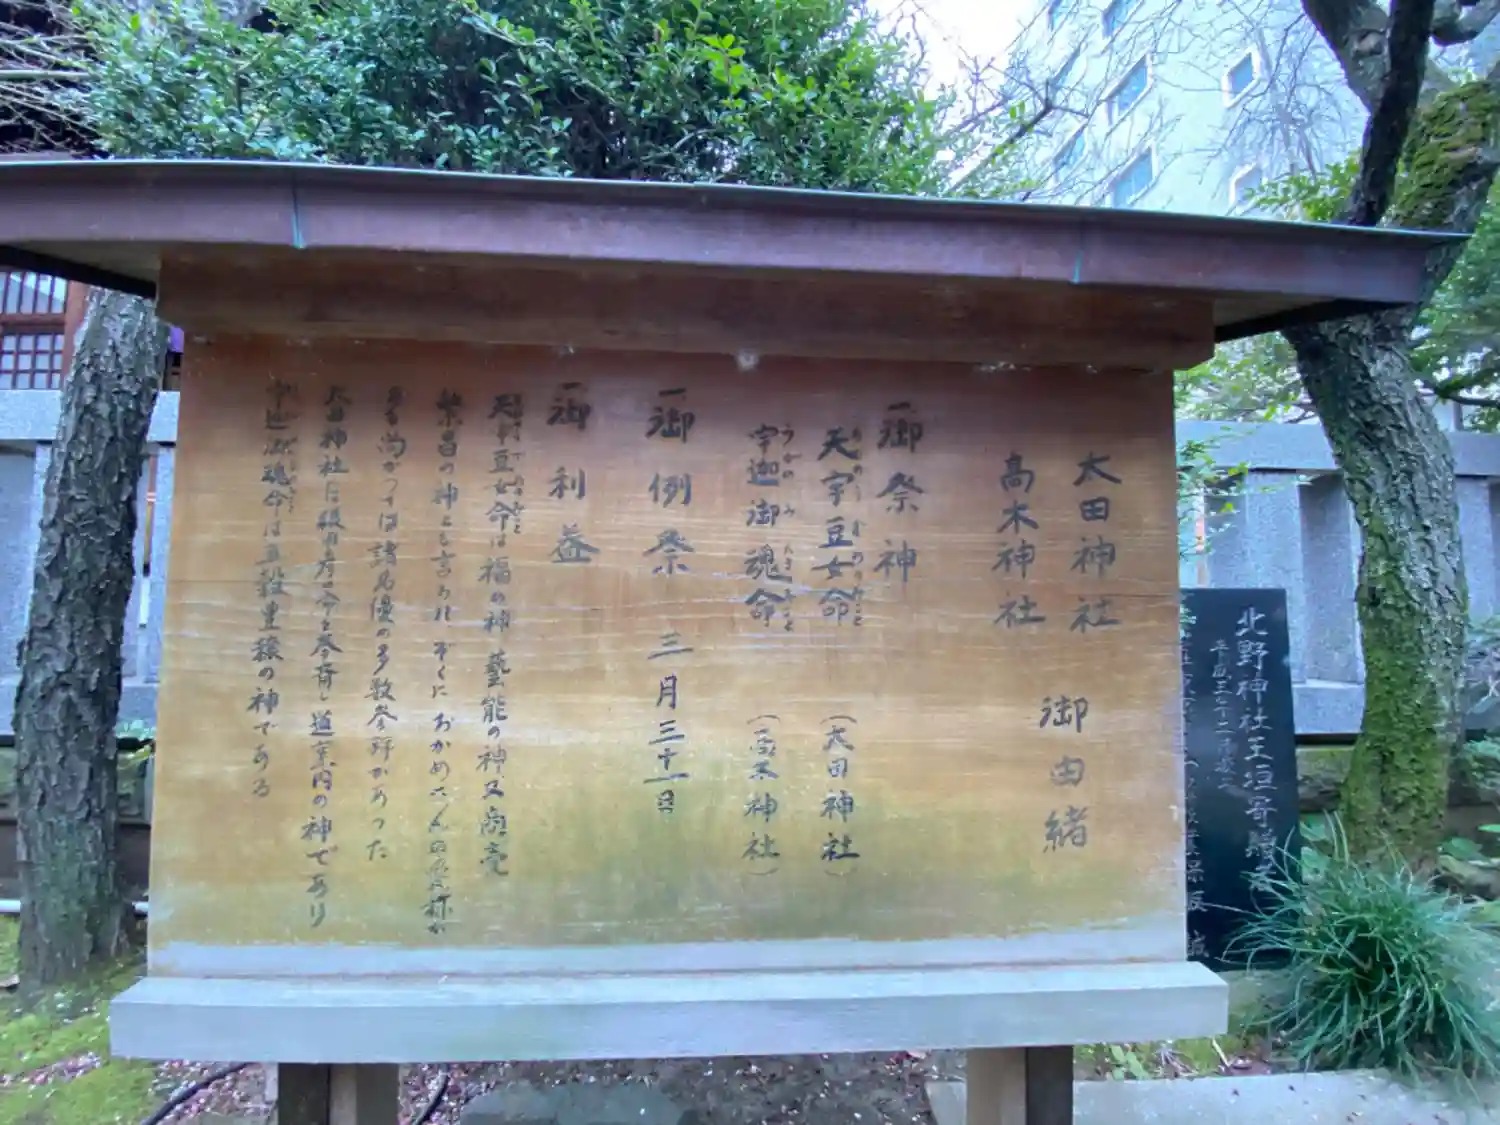 太田神社
高木神社
御由緒
一御祭神
天宇豆女命
あめのうずめのみこと
(太田神社)
宇迦御魂命
うかのみたまみこと
(高木神社)
一御例祭 三月三十一日
一御利益
天宇豆女命は福の神 藝能の神又商売
繁昌の神とも言われ ぞくにおかめさんの愛称が
ある尚かつては諸名優の多数参拝があった
太田神社は猿田彦命と
道案内の神であり
宇迦御魂命は五穀豊穣の神である
北野神社玉垣寄贈者